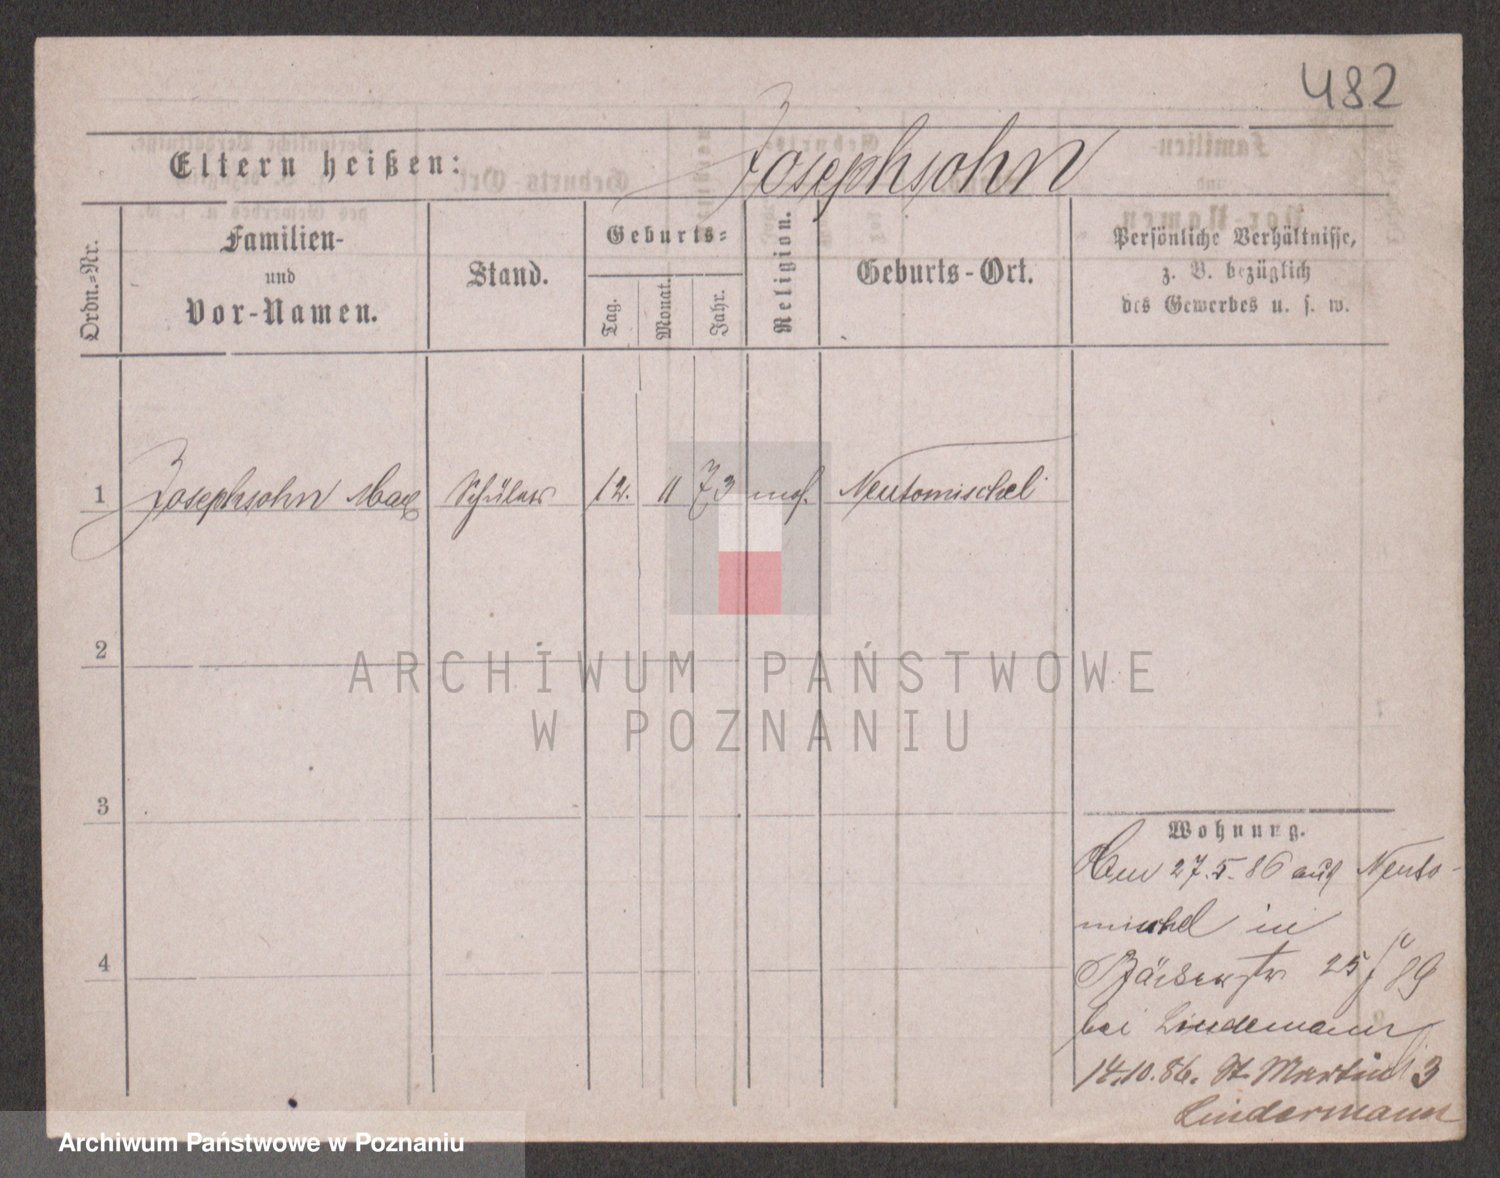 482
Eltern heißen: Josephsohn
Ordn.-Nr.
Familien-
und
Vor-Namen.
Stand.
Geburts-
Tag.
Monat.
Jahr.
Religion.
Geburts-Ort.
Persönliche Verhältnisse,
z. B. bezüglich
des Gewerbes u. s. w.
1 Josephsohn Max Schüler 12. 11 73 mos. Neutomischel
2
ARCHIWUM PAŃSTWOWE
W POZNANIU
3
4
Wohnung.
Am 27.5.86 aus Neuto-
mischel in
25/ 89
bei Lindemann
14.10.86. St. Martin 3
Lindermann
Archiwum Państwowe w Poznaniu